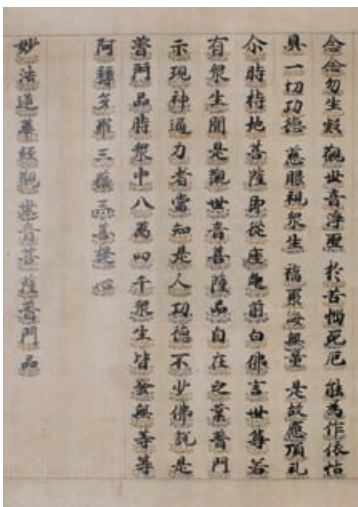 念念勿生疑 觀世音淨聖 於苦惱死厄 能為作依怙
具一切功德 慈眼視衆生 福聚海無量 是故應頂礼
尒時持地菩薩即從座起前白佛言世尊若
有衆生聞是觀世音菩薩品自在之業普門
示現神通力者當知是人功德不少佛説是
普門品時衆中八萬四千衆生皆發無等等
阿耨多羅三藐三菩提心
妙法蓮華經觀世音菩薩普門品